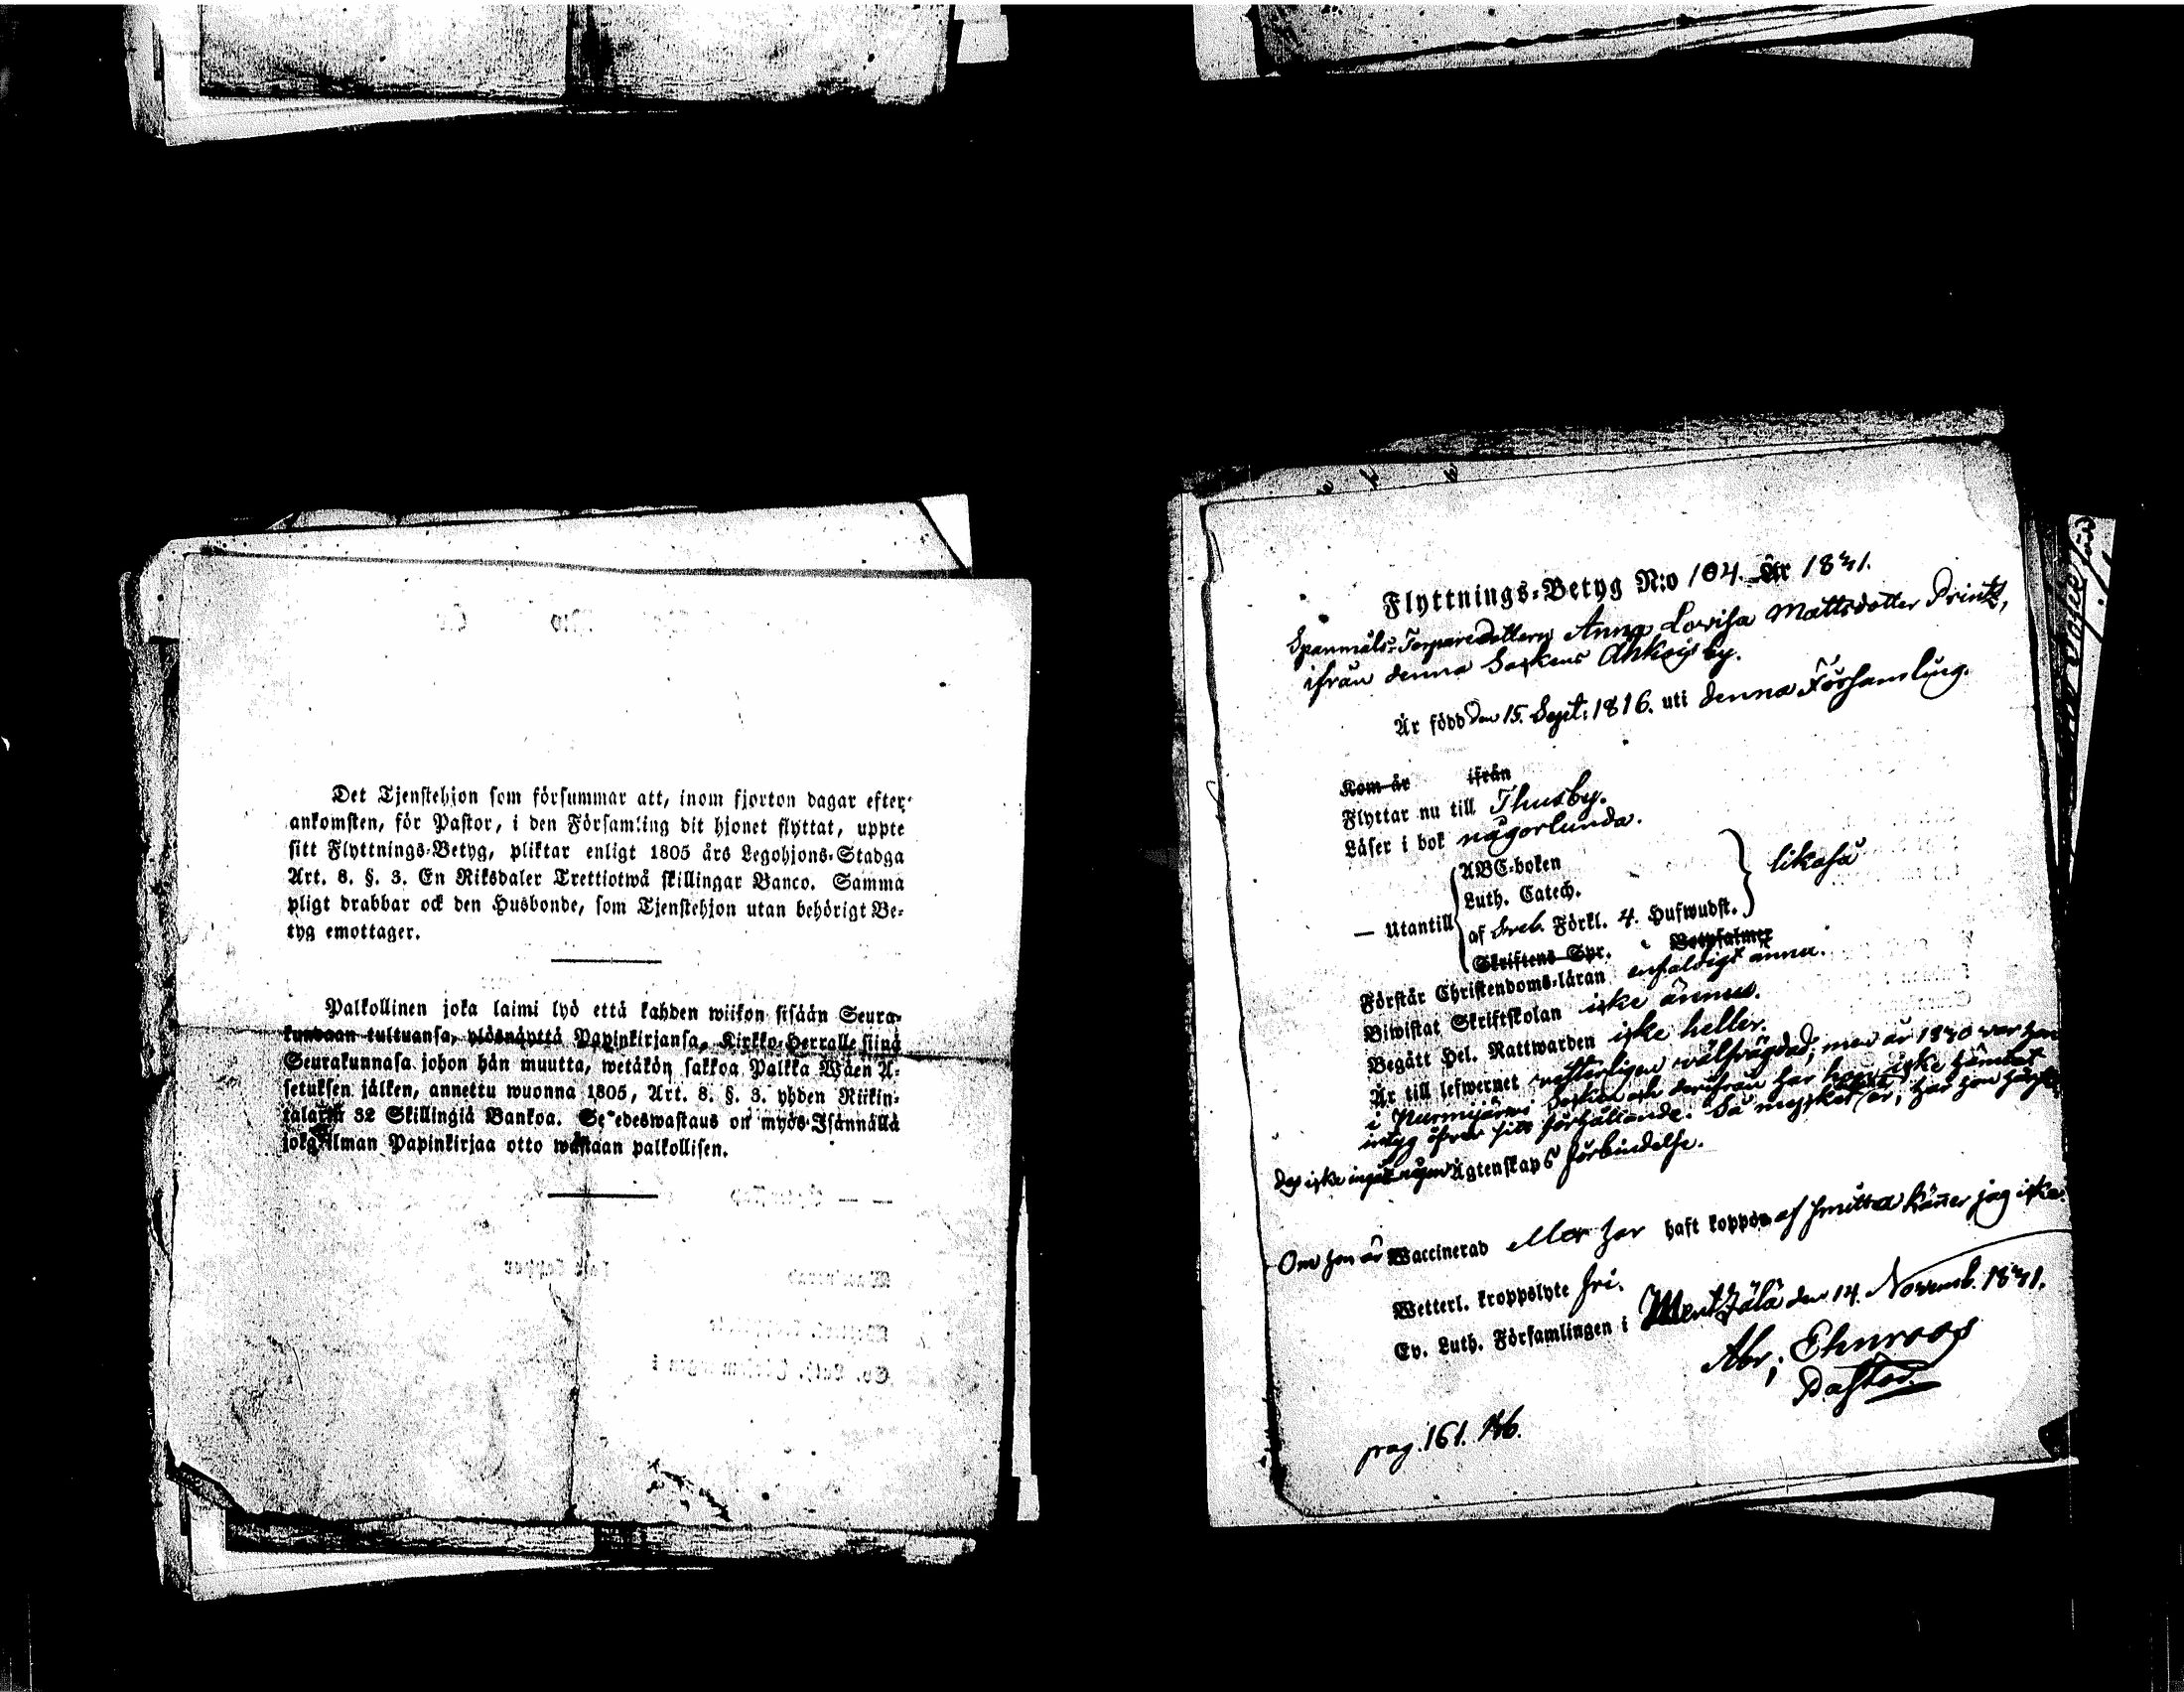 Det Tjenstehjon som försummar att, inom fjorton dagar efter
ankomsten, för Pastor, i den Församling dit hjonet flyttat, uppte
sitt Flyttnings-Betyg, pliktar enligt 1805 års Legohjons-Stadga
Art. 8. §. 3. En Riksdaler Trettiotwå skillingar Banco. Samma
pligt drabbar ock den Husbonde, som Tjenstehjon utan behörigt Be-
tyg emottager.
Palkollinen joka laimi lyö että kahden wiikon sisään Seura-
kundaan tultuansa, ylösnäyttä Papinkirjansa, Kirkko-Herralle siinä
Seurakunnasa johon hän muutta, wetäkön sakkoa Palkka Wäen A-
setuksen jälken, annettu wuonna 1805, Art. 8. §. 3. yhden Riikin-
talarin 32 Skillingiä Bankoa. Se edeswastaus on myös Isännällä
joka ilman Papinkirjaa otto wastaan palkollisen.
Flyttnings-Betyg N:o 104. År 1831.
Spanmåls-Torparedottern Anna Lovisa Mattsdotter Printz,
ifrån denna Sockens by.
Är född den 15. Sept: 1816. uti denna Församling.
Kom år ifrån
Flyttar nu till Thusby.
Läser i bok någorlunda.
— Utantill
ABC-boken
Luth. Catech.
af Sveb. Förkl. 4. Hufwudst.
Skriftens Spr. Botpsalmer
likaså
Förstår Christendoms-läran enfaldigt ännu.
Biwistat Skriftskolan icke ännu.
Begått Hel. Nattwarden icke heller.
Är till lefwernet wälfrägdad; men år 1830 var hon
i Nurmijärvi Socken och derifrån har hon icke hämtat
intyg öfver sitt förhållande. Så mycket är, har hon
icke ingått någon Ägtenskaps förbindelse.
Om hon är Waccinerad eller har haft koppor af smitta känner jag icke.
Wetterl. kroppslyte fri.
Ev. Luth. Församlingen i Mentzälä den 14. Novemb. 1831.
Abr; Ehnroos
Pastor.
pag. 161.